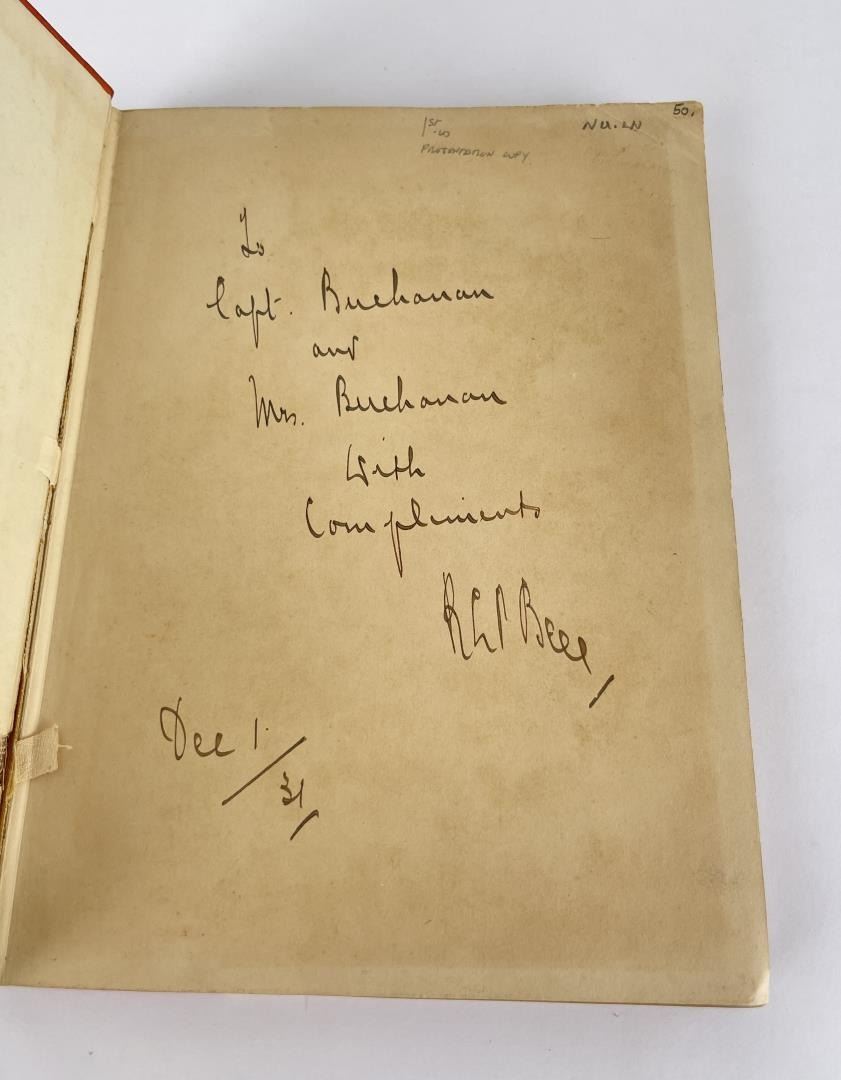 1st
PRESENTATION COPY
50.
To
Capt. Buchanan
and
Mrs. Buchanan
With
Compliments
Dec 1
/31